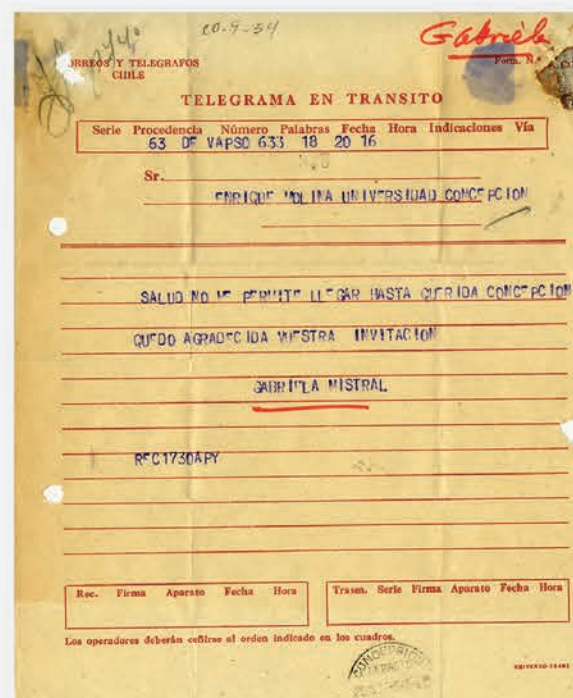 20-9-54
Gabriela
CORREOS Y TELEGRAFOS
CHILE
Form. N.º
TELEGRAMA EN TRANSITO
Serie Procedencia Número Palabras Fecha Hora Indicaciones Vía
63 DE VAPSO 633 18 20 16
Sr.
ENRIQUE MOLINA UNIVERSIDAD CONCEPCION
SALUD NO ME PERMITE LLEGAR HASTA QUERIDA CONCEPCION
QUEDO AGRADECIDA VUESTRA INVITACION
GABRIELA MISTRAL
REC1730APY
Rec. Firma Aparato Fecha Hora
Trasm. Serie Firma Aparato Fecha Hora
Los operadores deberán ceñirse al orden indicado en los cuadros.
CONCEPCION